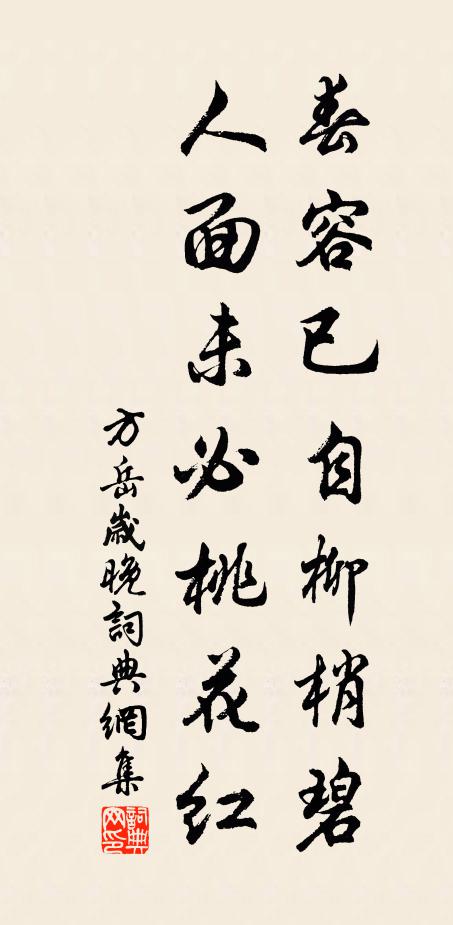 春容已自柳梢碧
人面未必桃花紅
方岳歲晚詞典網集
詞典網印